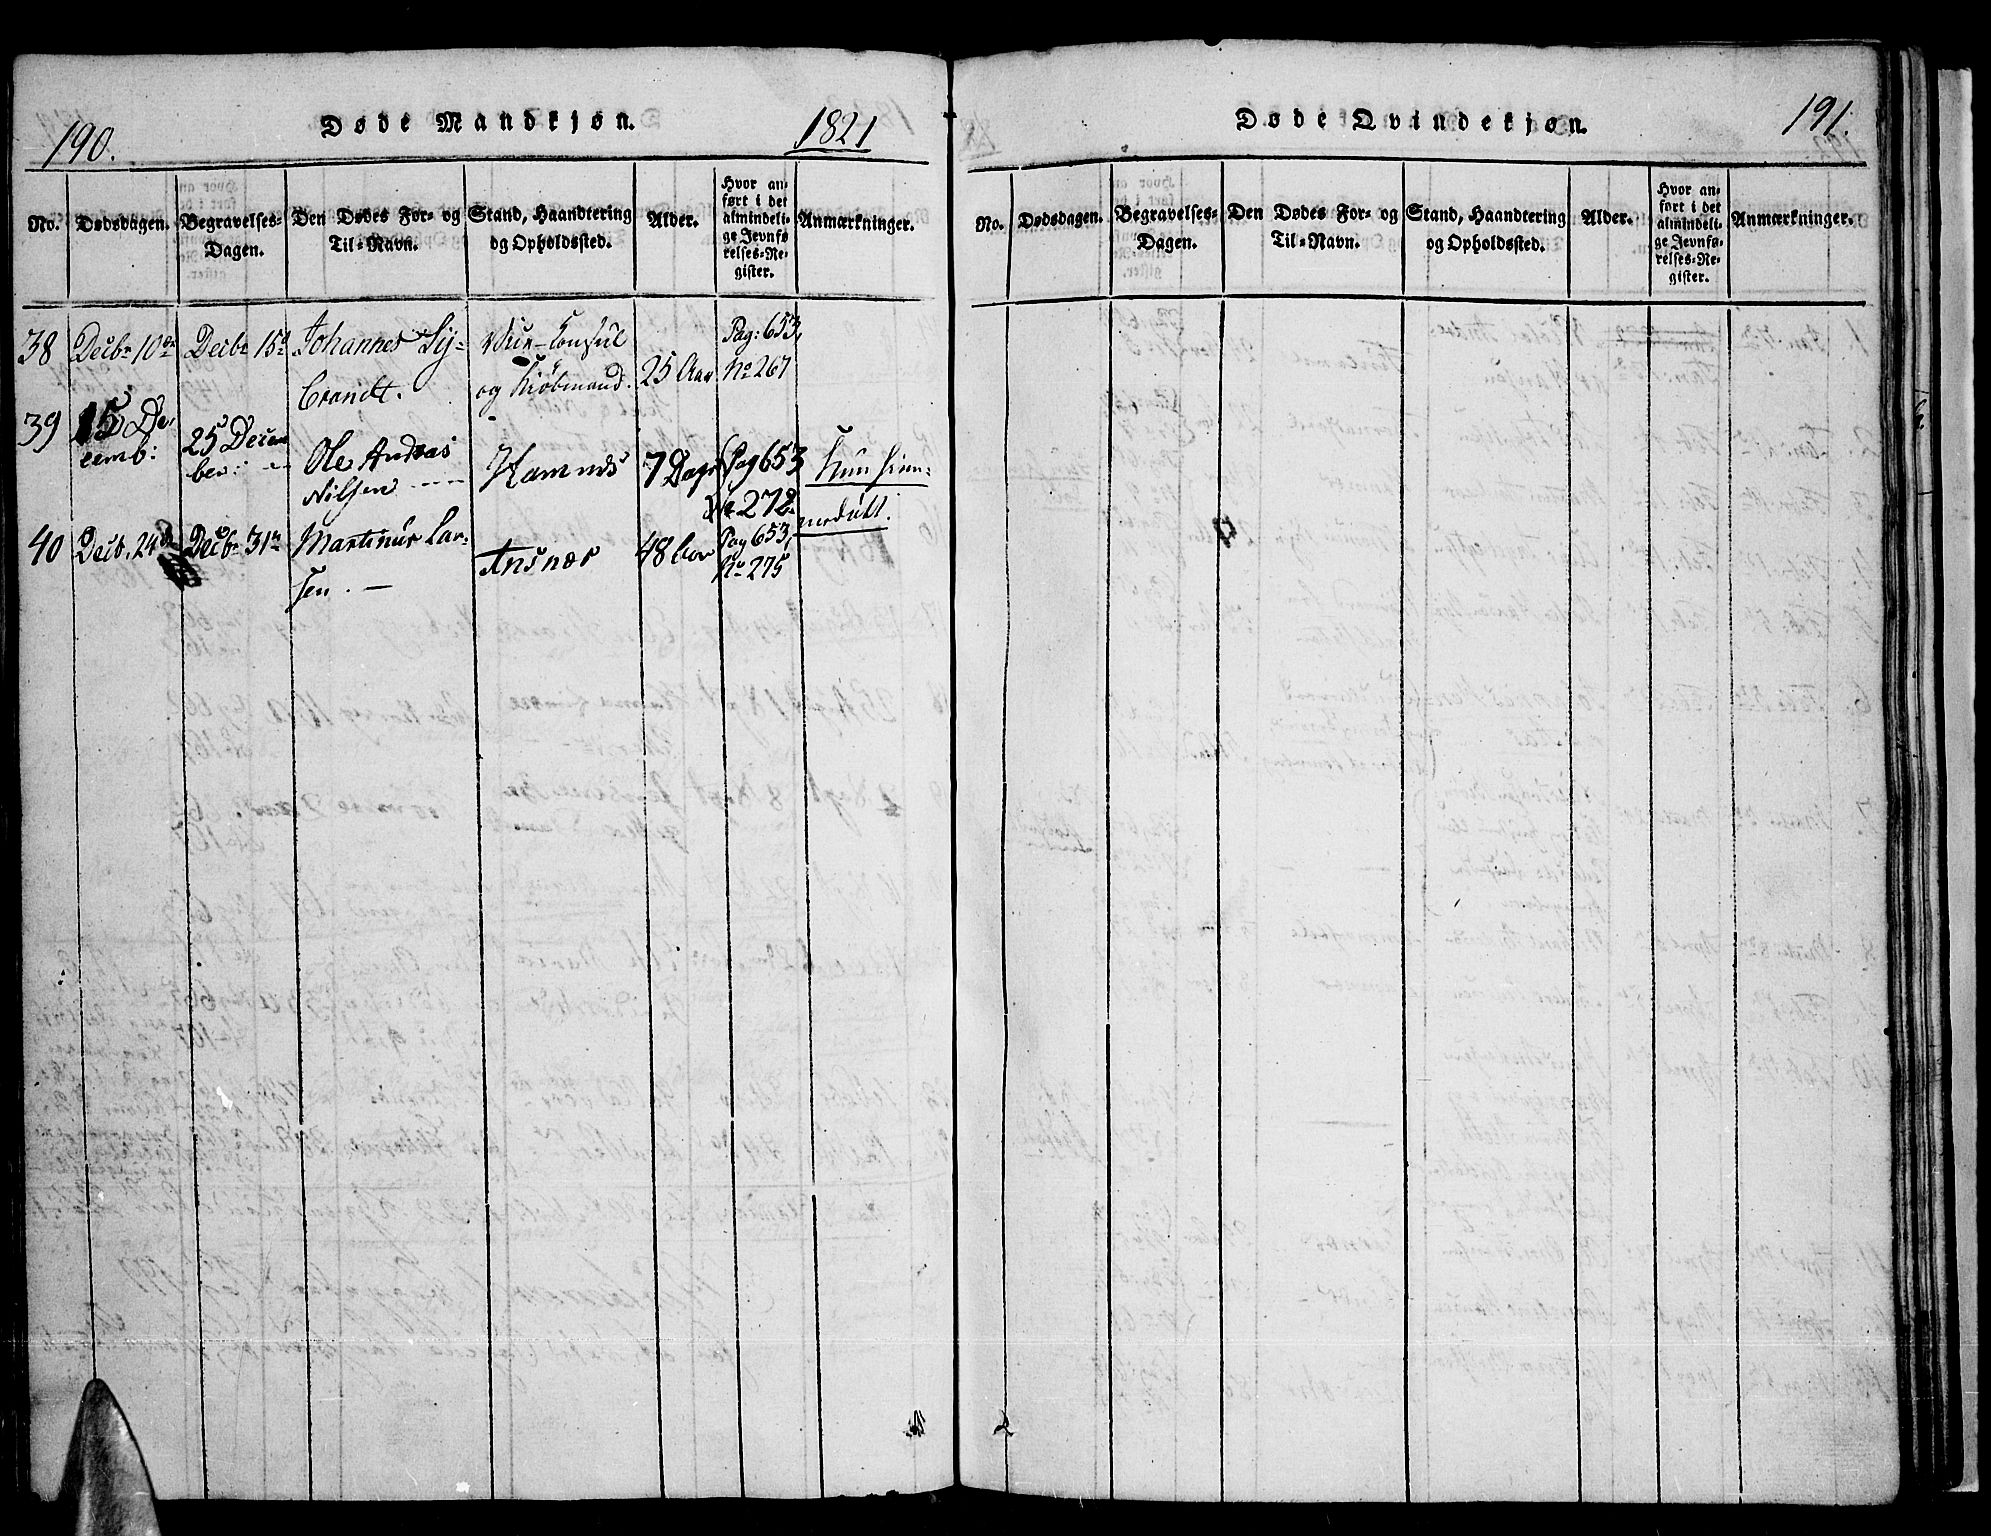 190.
Døde Mandkjøn.
1821
No.
Dødsdagen.
Begravelses-
Dagen.
Den Dødes For- og
Til-Navn.
Stand, Haandtering
og Opholdssted.
Alder.
Hvor an-
ført i det
almindeli-
ge Jevnfø-
relses-Re-
gister.
Anmærkninger.
38
Decbr 10de
Decbr 15d
Johannes Ly-
brandt.
Vice-Consul
og Kiøbmand.
25 Aar
Pag: 653,
No 267
39
15 De-
cemb:
25 Decem
ber.
Ole Andreas
Nilsen
Hamnes
7 Dage
Pag 653
No 272
40
Decb. 24de
Decbr 31te
Martinus Lar-
sen.
48 Aar
Pag 653,
No 275
Døde Qvindekjøn.
191.
No.
Dødsdagen.
Begravelses-
Dagen.
Den Dødes For- og
Til-Navn.
Stand, Haandtering
og Opholdssted.
Alder.
Hvor an-
ført i det
almindeli-
ge Jevnfø-
relses-Re-
gister.
Anmærkninger.